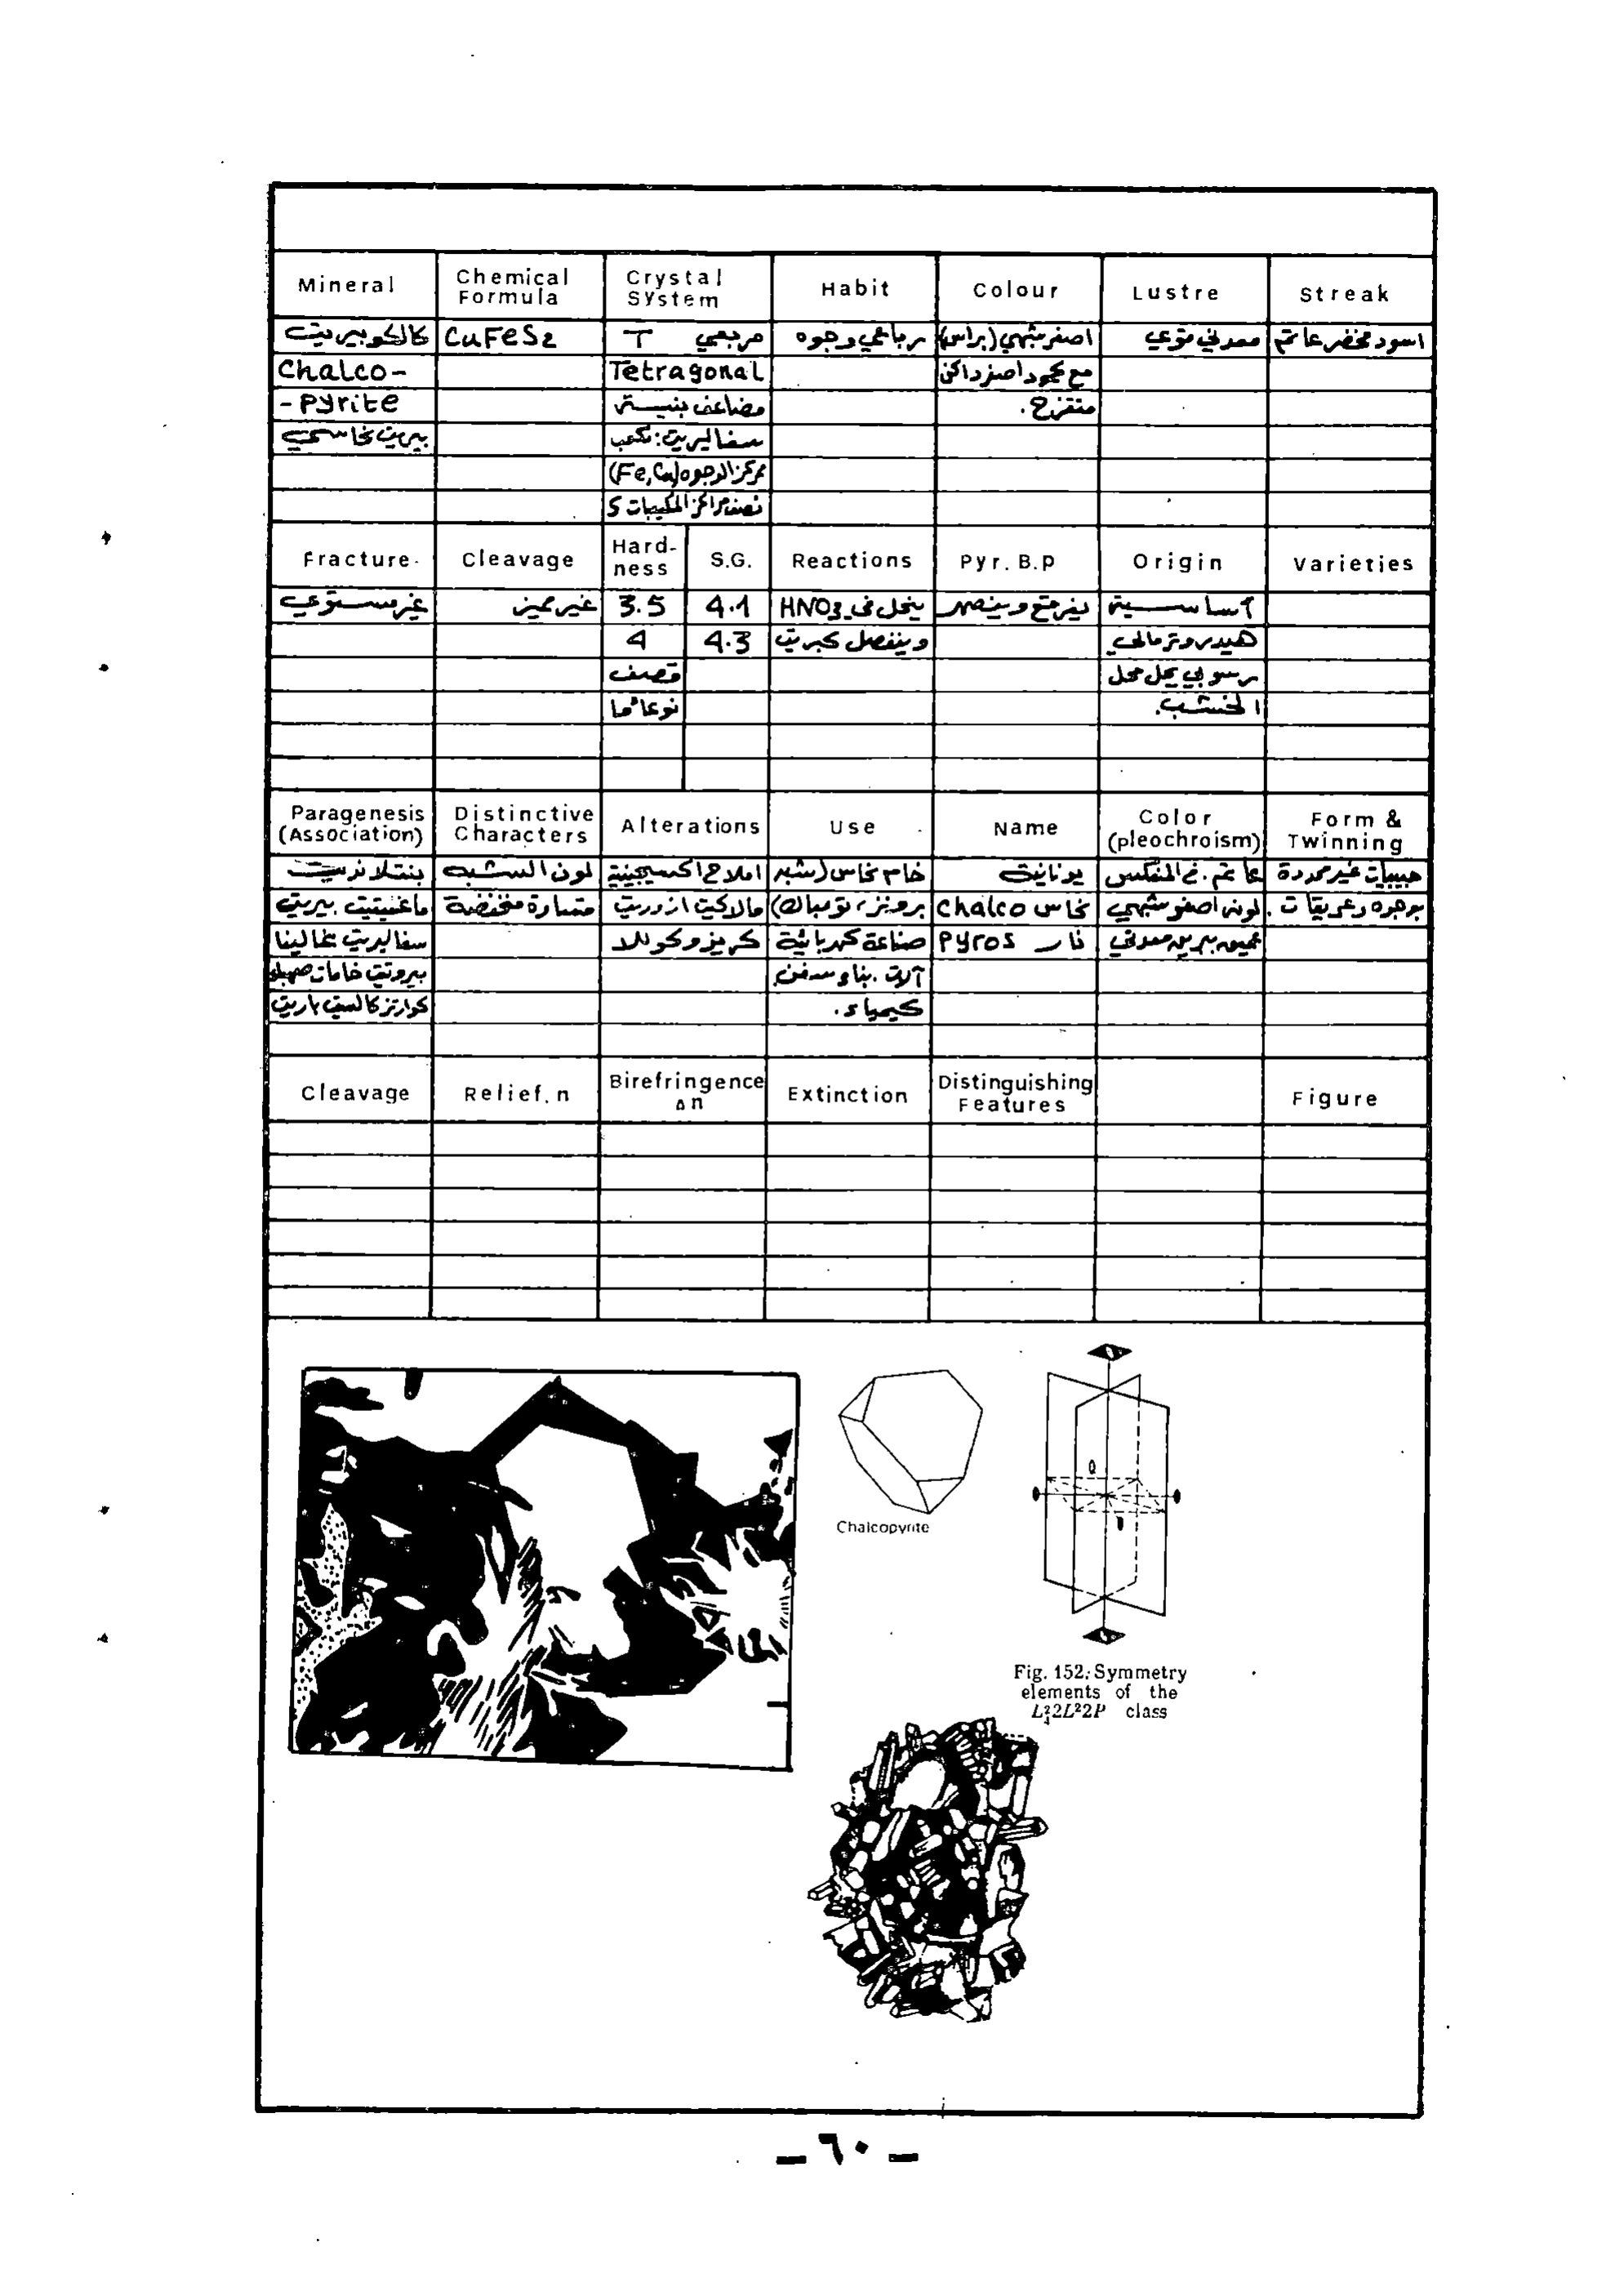 Mineral
Chemical Formula
Crystal System
Habit
Colour
Lustre
Streak
كالكوبيريت CuFeS2 T مربعي رباعي وجوه اصفر شبهي (براس) معدني قوي اسود مخضر عاتم
Chalco- Tetragonal مع مجود اصفر داكن
-pyrite مضاعف بنية متقزح.
بيريت نحاسي سفاليريت: مكعب
مركز الوجوه (Fe,Cu)
نصف مراكز المكيبات S
Fracture
Cleavage
Hard-ness
S.G.
Reactions
Pyr. B.p
Origin
Varieties
غير مستوي غير مميز 3.5 4.1 ينحل في HNO3 يفرقع وينصهر اساسية
4 4.3 وينفصل كبريت هيدروترمالي
قصف رسوبي يحل محل
نوعا ما الخشب.
Paragenesis (Association)
Distinctive Characters
Alterations
Use
Name
Color (pleochroism)
Form & Twinning
بنتلانديت لون الشبه املاح اكسيجينية خام نحاس (شبه يونانية عاتم. في المنعكس حبيبات غير محددة
ماغنيتيت بيريت قساوة منخفضة مالاكيت ازوريت برونز، تومباك) نحاس chalco لونه اصفر شبهي بوجوه وعريقات.
سفاليريت غالينا كريزوكوللا صناعة كهربائية نار pyros عميق ببريق معدني
بيروتيت خامات صهباء آلات. بناء سفن
كوارتز كالسيت باريت كيمياء.
Cleavage
Relief. n
Birefringence Δn
Extinction
Distinguishing Features
Figure
Chalcopyrite
Fig. 152. Symmetry
elements of the
L²₄2L²2P class
– ٦٠ –